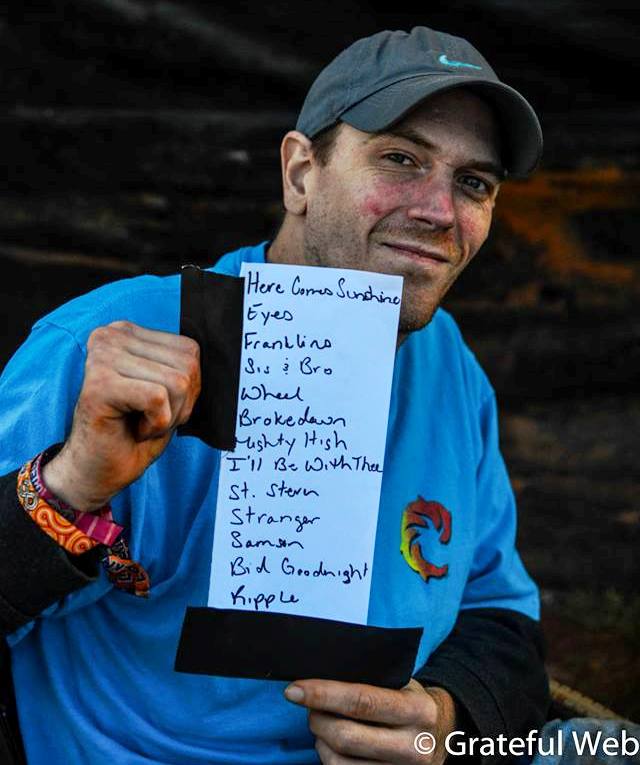 Here Comes Sunshine
Eyes
Franklins
Sis & Bro
Wheel
Brokedown
Mighty High
I'll Be With Thee
St. Steven
Stranger
Samson
Bid Goodnight
Ripple
© Grateful Web